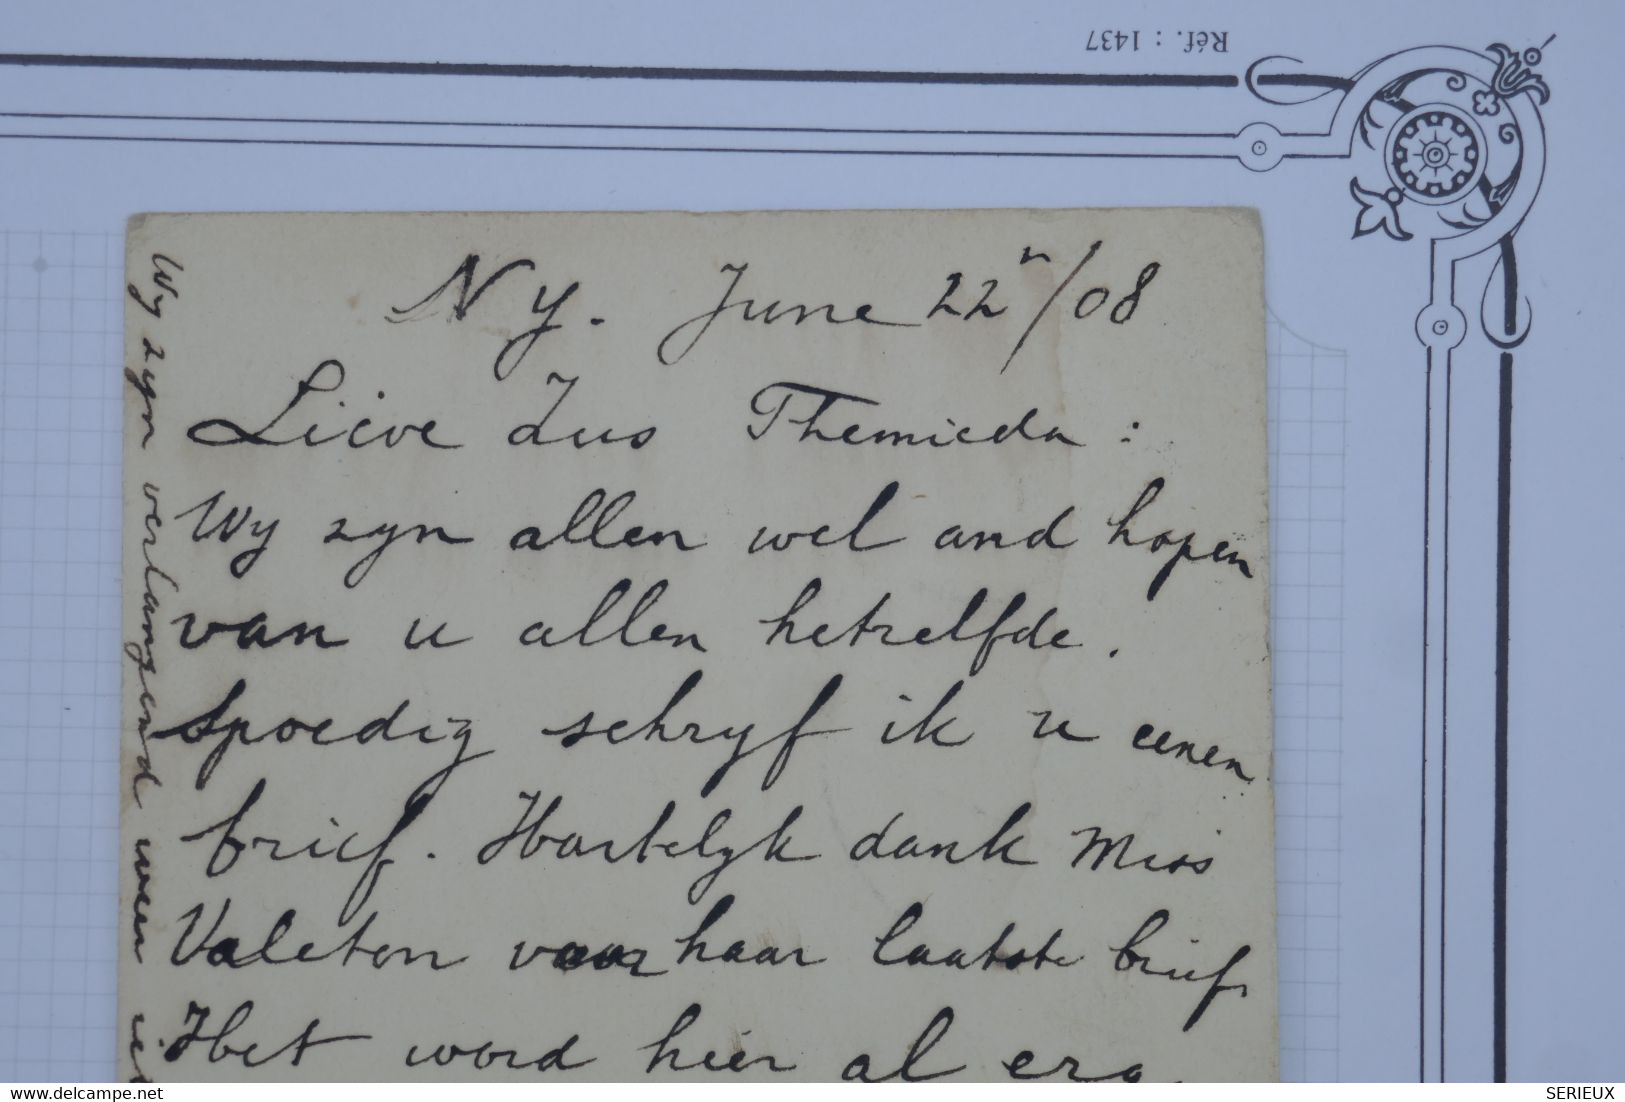 Réf. : 1437
NY. June 22n/08
Lieve Zus Themieda :
Wy zyn allen wel and hopen
van u allen hetzelfde.
Spoedig schryf ik u eenen
brief. Hartelyk dank Miss
Valeton voor haar laatste brief,
Het word hier al erg
Wy zyn verlangend weer
delcampe.net
SERIEUX